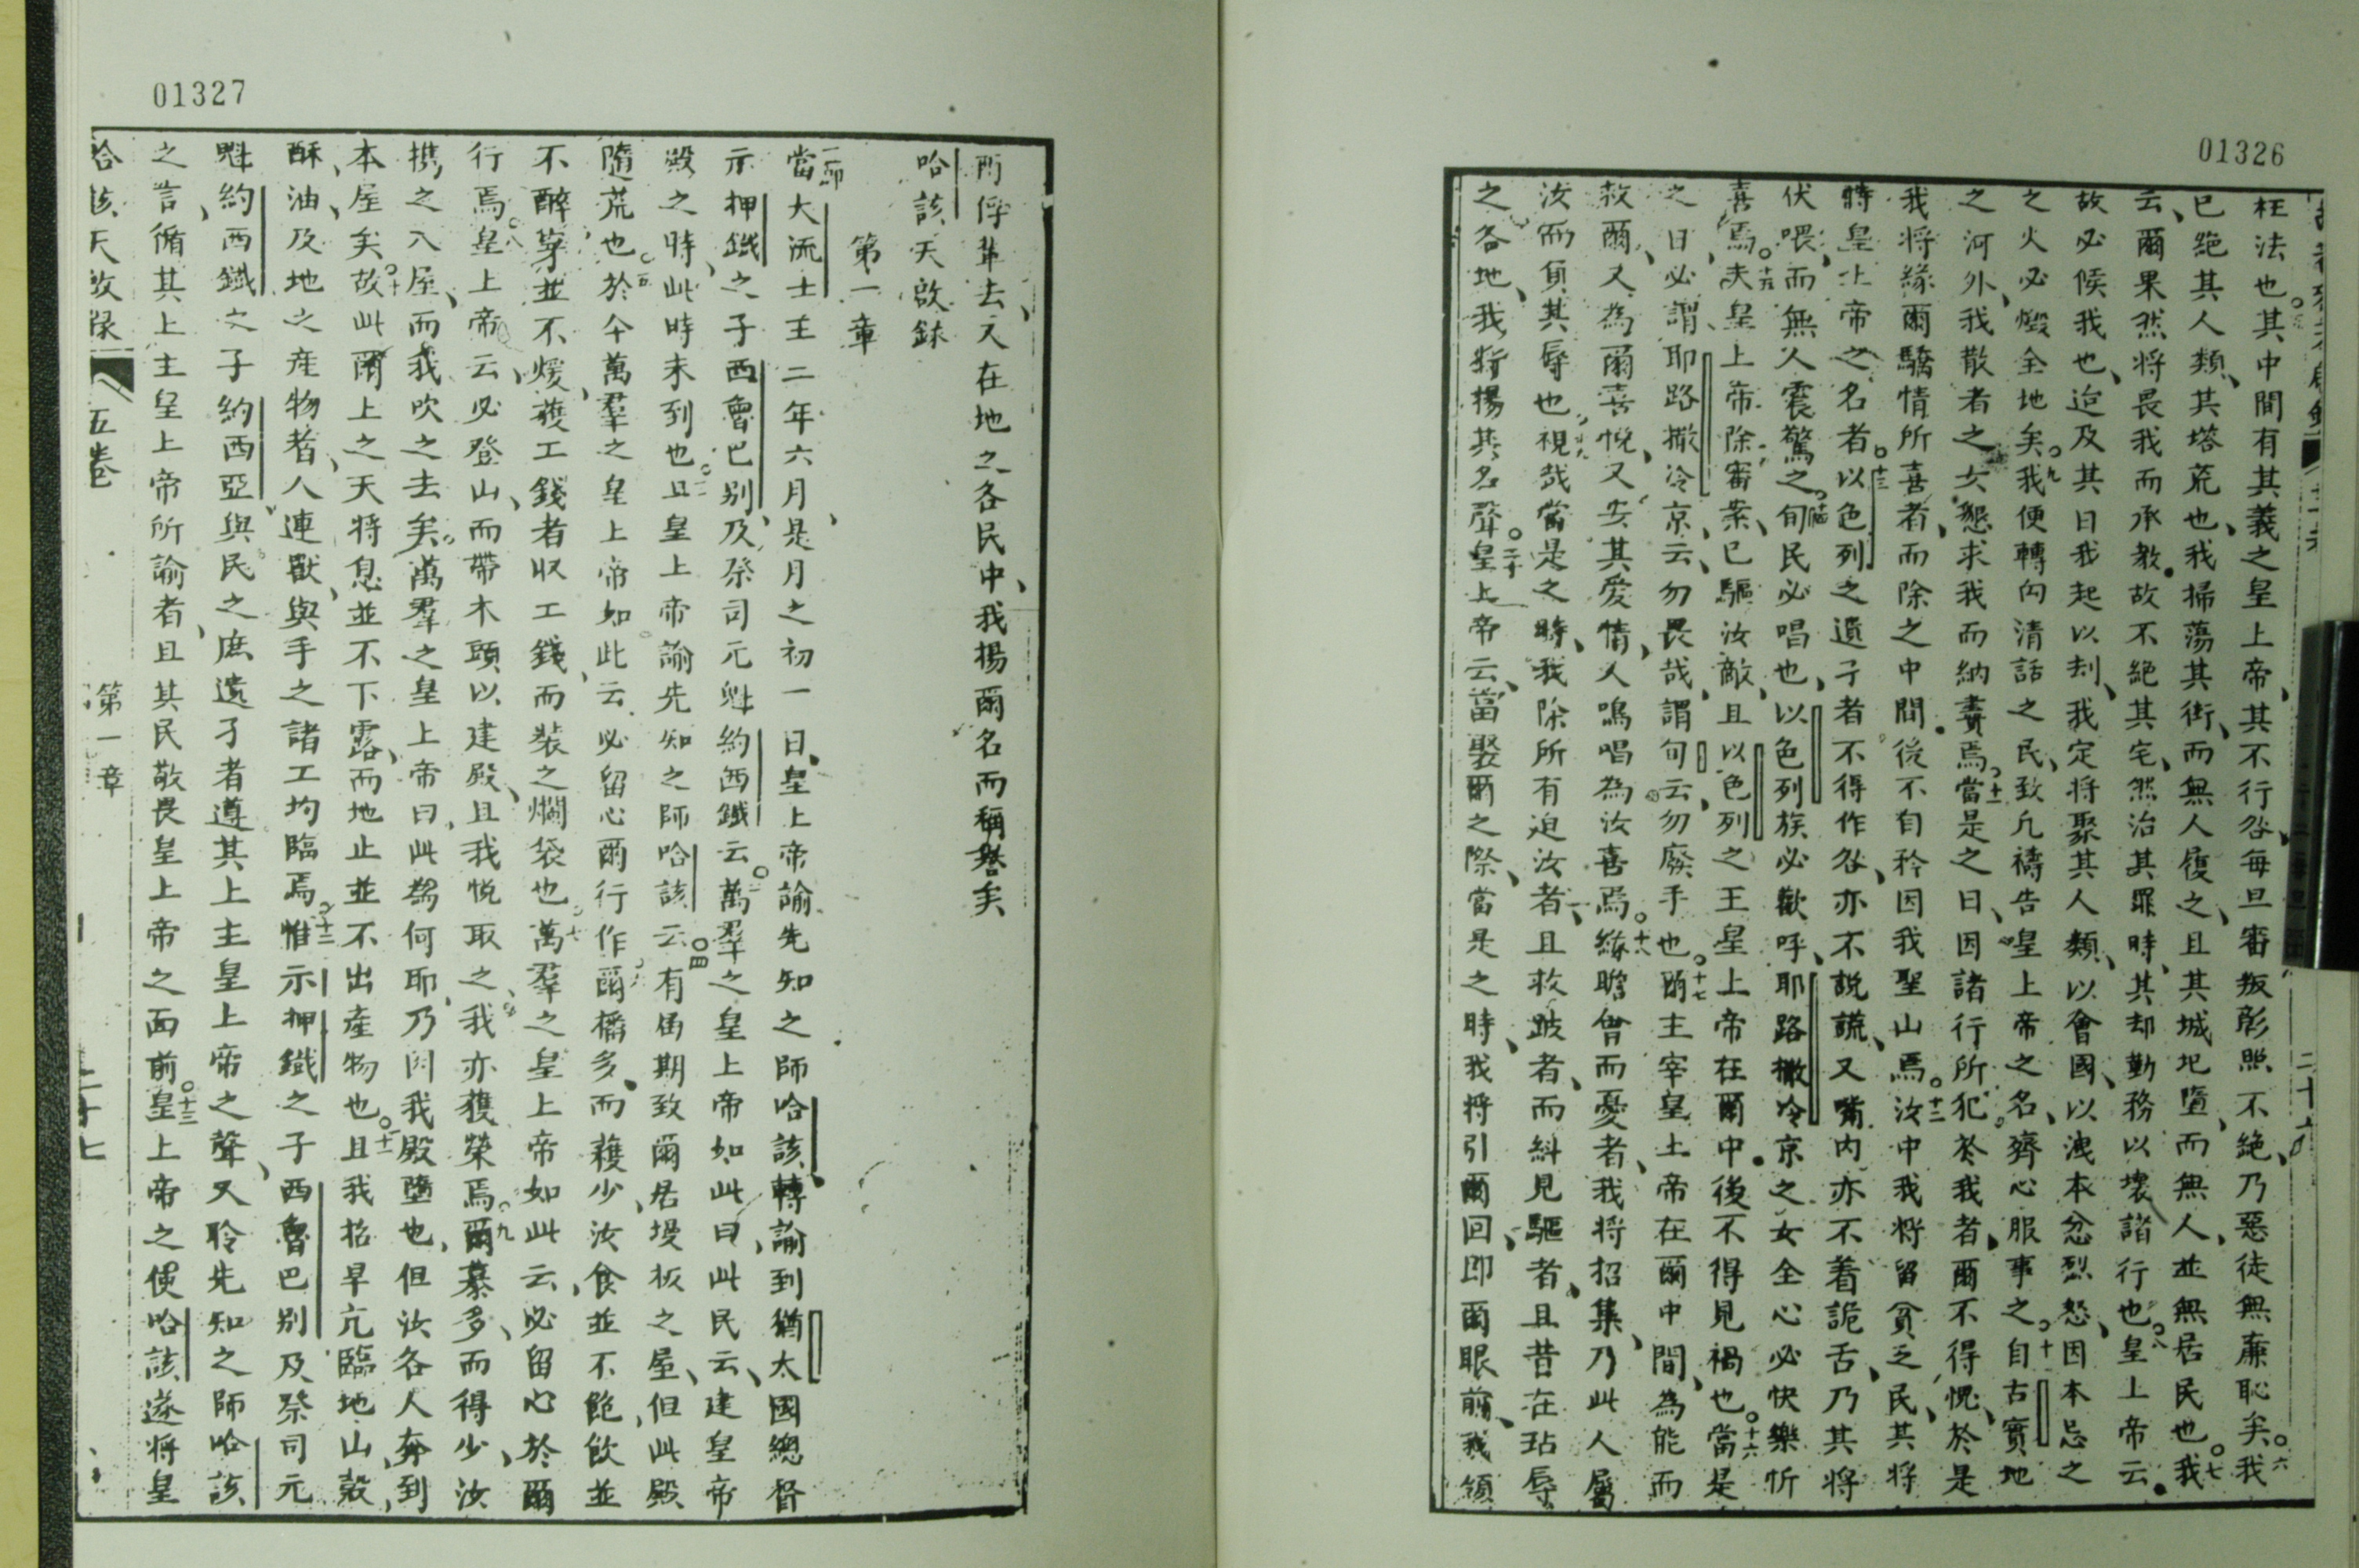 01326
枉法也。五其中間有其義之皇上帝、其不行咎、每旦審叛彰照不絶、乃惡徒無廉恥矣。六我
已絶其人類、其塔荒也、我掃蕩其街、而無人履之、且其城圮墮、而無人、並無居民也。七我
云、爾果然将畏我而承教、故不絶其宅、然治其罪時、其却勤務以壊諸行也。八皇上帝云、
故必候我也、迨及其日我起以刦、我定将聚其人類、以會國、以洩本忿烈怒、因本忌之
之火必燬全地矣。九我便轉向清話之民、致凢禱告皇上帝之名、齊心服事之。十自古實地
之河外、我散者之女懇求我而納責焉。十一當是之日、因諸行所犯於我者、爾不得愧、於是
我将縁爾驕情所喜者、而除之中間、後不自矜因我聖山焉。十二汝中我将留貧乏民、其将
賴皇上帝之名者。十三以色列之遺孑者、不得作咎、亦不説謊、又嘴内亦不着詭舌、乃其将
伏喂、而無人震驚之。十四旬民必唱也、以色列族必歡呼、耶路撒冷京之女全心必快樂忻
喜焉。十五夫皇上帝除審案、已驅汝敵、且以色列之王皇上帝在爾中、後不得見禍也。十六當是
之日、必謂耶路撒冷京、云、勿畏哉、謂旬云、勿廢手也。十七爾主宰皇上帝在爾中間、為能而
救爾、又為爾喜悅、又安其愛情、人鳴唱為汝喜焉。十八緣瞻會而憂者、我将招集、乃此人屬
汝而負其辱也。十九視哉當是之時、我除所有迫汝者、且救跛者、而糾見驅者、且昔在玷辱
之各地、我将揚其名聲。二十皇上帝云、當娶爾之際、當是之時、我将引爾回、即爾眼前、我領
01327
所俘輩去、又在地之各民中、我揚爾名而稱譽矣
哈該天啟錄
第一章
一節當大流士王二年六月、是月之初一日、皇上帝諭先知之師哈該、轉諭到猶太國總督
示押鐵之子西魯巴別、及祭司元魁約西鐵云。二萬羣之皇上帝如此曰、此民云、建皇帝
殿之時、此時未到也。三且皇上帝諭先知之師哈該云。四有届期致爾居墁板之屋、但此殿
隨荒也。五於今萬羣之皇上帝如此云、必留心爾行作。六爾播多、而穫少、汝食並不飽、飲並
不醉、穿並不煖、獲工錢者収工錢、而裝之爛袋也。七萬羣之皇上帝如此云、必留心於爾
行焉。八皇上帝云、必登山、而帶木頭以建殿、且我悅取之、我亦獲榮焉。九爾慕多、而得少、汝
携之入屋、而我吹之去矣、萬羣之皇上帝曰、此為何耶、乃因我殿墮也、但汝各人奔到
本屋矣。十故此爾上之天将息並不下露、而地止並不出產物也。十一且我招旱亢臨地山穀、
酥油、及地之產物者、人連獸、與手之諸工均臨焉。十二惟示押鐵之子西魯巴別及祭司元
魁約西鐵之子約西亞、與民之庶遺孑者遵其上主皇上帝之聲、又聆先知之師哈該
之言、循其上主皇上帝所諭者、且其民敬畏皇上帝之面前。十三皇上帝之使哈該遂将皇
哈該天啟錄 五卷 第一章 二十七